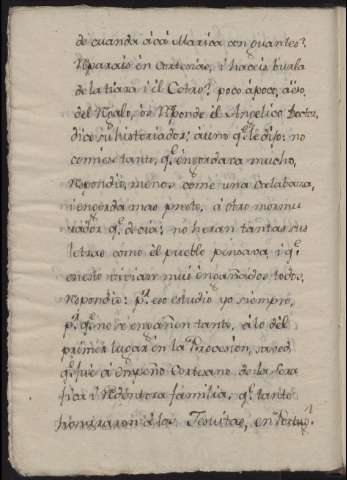 de cuanda acá Marica con guantes?
Reparais en cortesias, i haceis burla
de la tiara i el Cetro? poco á poco, á eso
del Regalo, os Responde el Angelico Doctor,
dice su historiador; á uno q.e le dijo: no
comiese tanto, q.e engordara mucho,
Respondio, menos come una calabaza,
i engorda mas presto, á otro mormu
rador q.e decia: no heran tantas sus
letras como el pueblo pensava, i q.e
en esto vivian mui engañados todos,
Respondio: p.r eso estudio yo siempre,
p.r q.e no se engañen tanto, á lo del
primer lugar en la Procesion,
q.e fué á empeño Cortesano de la Sera
fica i Redentora familia, q.e tanto
honraron á los Jesuitas, en Portug.l